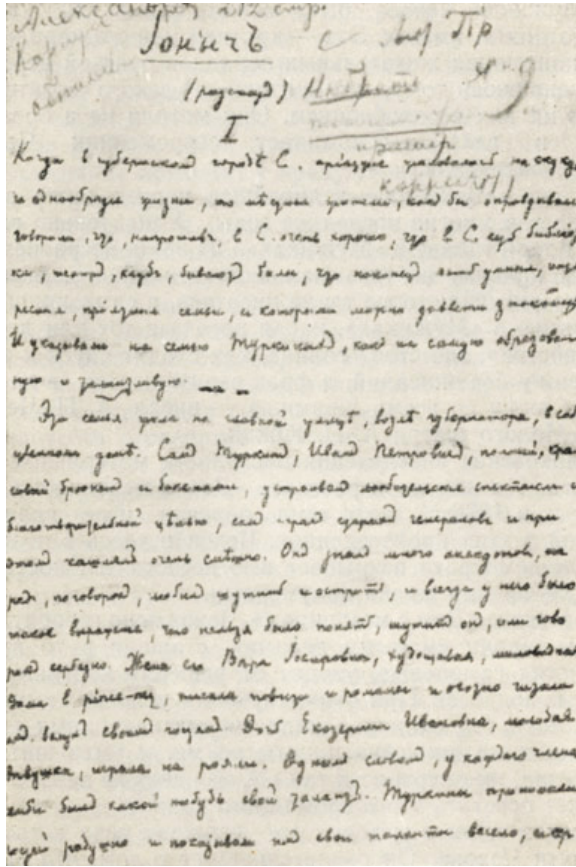 Александрия 212 стр.
Іонычъ
(разсказ)
I
Когда в губернском городѣ С. приѣзжие жаловались на скуку
корректуру
и однообразие жизни, то мѣстные жители, как бы оправдываясь
говорили, что, напротив, в С. очень хорошо, что в С. есть библіоте
ка, театр, клуб, бывают балы, что наконец есть умныя, инте
ресныя, приятныя семьи, с которыми можно завести знакомства
И указывали на семью Туркиных, как на самую образован
ную и
Эта семья жила на главной улицѣ, возлѣ губернатора, в соб
ственном домѣ. Сам Туркин, Иван Петрович, полный, кра
сивый брюнет с бакенами, устраивал любительские спектакли с
благотворительной цѣлью, сам играл старых генералов и при
этом кашлял очень смѣшно. Он знал много анекдотов, ша
рад, поговорок, любил шутить и острить, и всегда у него было
такое выражение, что нельзя было понять, шутит он, или гово
рит серьезно. Жена его Вѣра Іосифовна, худощавая, миловидная
дама в pince-nez, писала повѣсти и романы и охотно читала
их вслух своим гостям. Дочь Екатерина Ивановна, молодая
дѣвушка, играла на рояли. Одним словом, у каждого члена
семьи был какой нибудь свой талант. Туркины принимали
гостей радушно и показывали им свои таланты весело, с сер